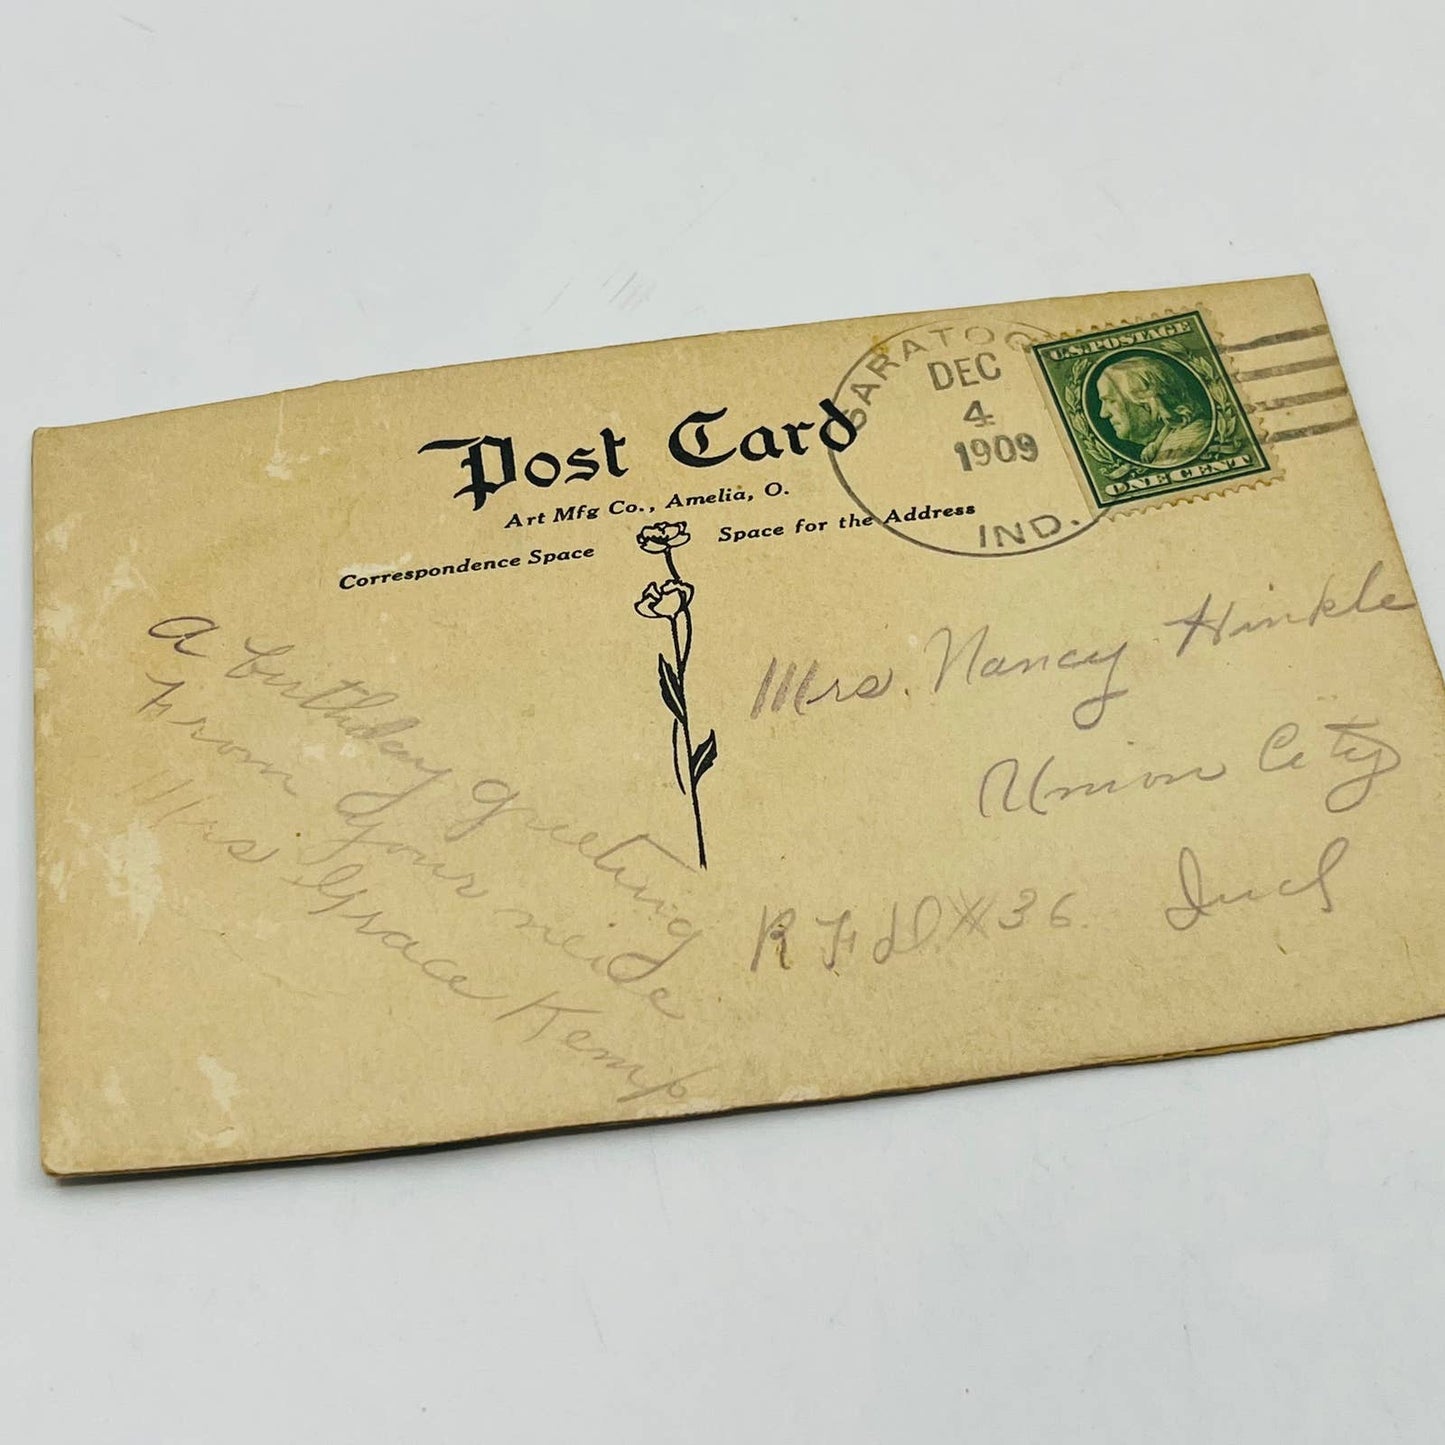 Post Card
Art Mfg Co., Amelia, O.
Correspondence Space
Space for the Address
SARATOG
DEC
4
1909
IND.
U.S. POSTAGE
ONE CENT
A birthday greeting
From your neice
Mrs Grace Kemp
Mrs. Nancy Hinkle
Union City
R F D # 36. Ind